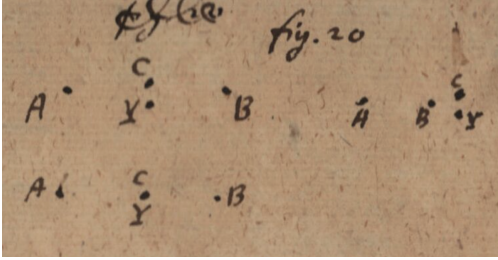 fig. 20
C C
A Y B A B Y
C
A Y B